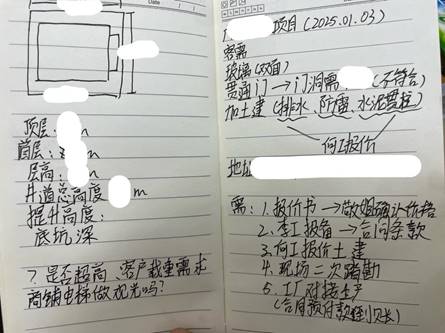 顶层: m
首层: m
层高: m
井道总高度 m
提升高度:
底坑深
? 是否超高、客户载重需求
商铺电梯做观光吗?
项目(2025.01.03)
客需
玻璃(双面)
贯通门→门洞需 (不符合)
加土建(排水、防雷、水泥
何工报价
地址
需: 1. 报价书→ 姐确认价格
2. 李工报备→合同条款
3. 何工报价土建
4. 现场二次踏勘
5. 工厂对接生产
(合同预付款